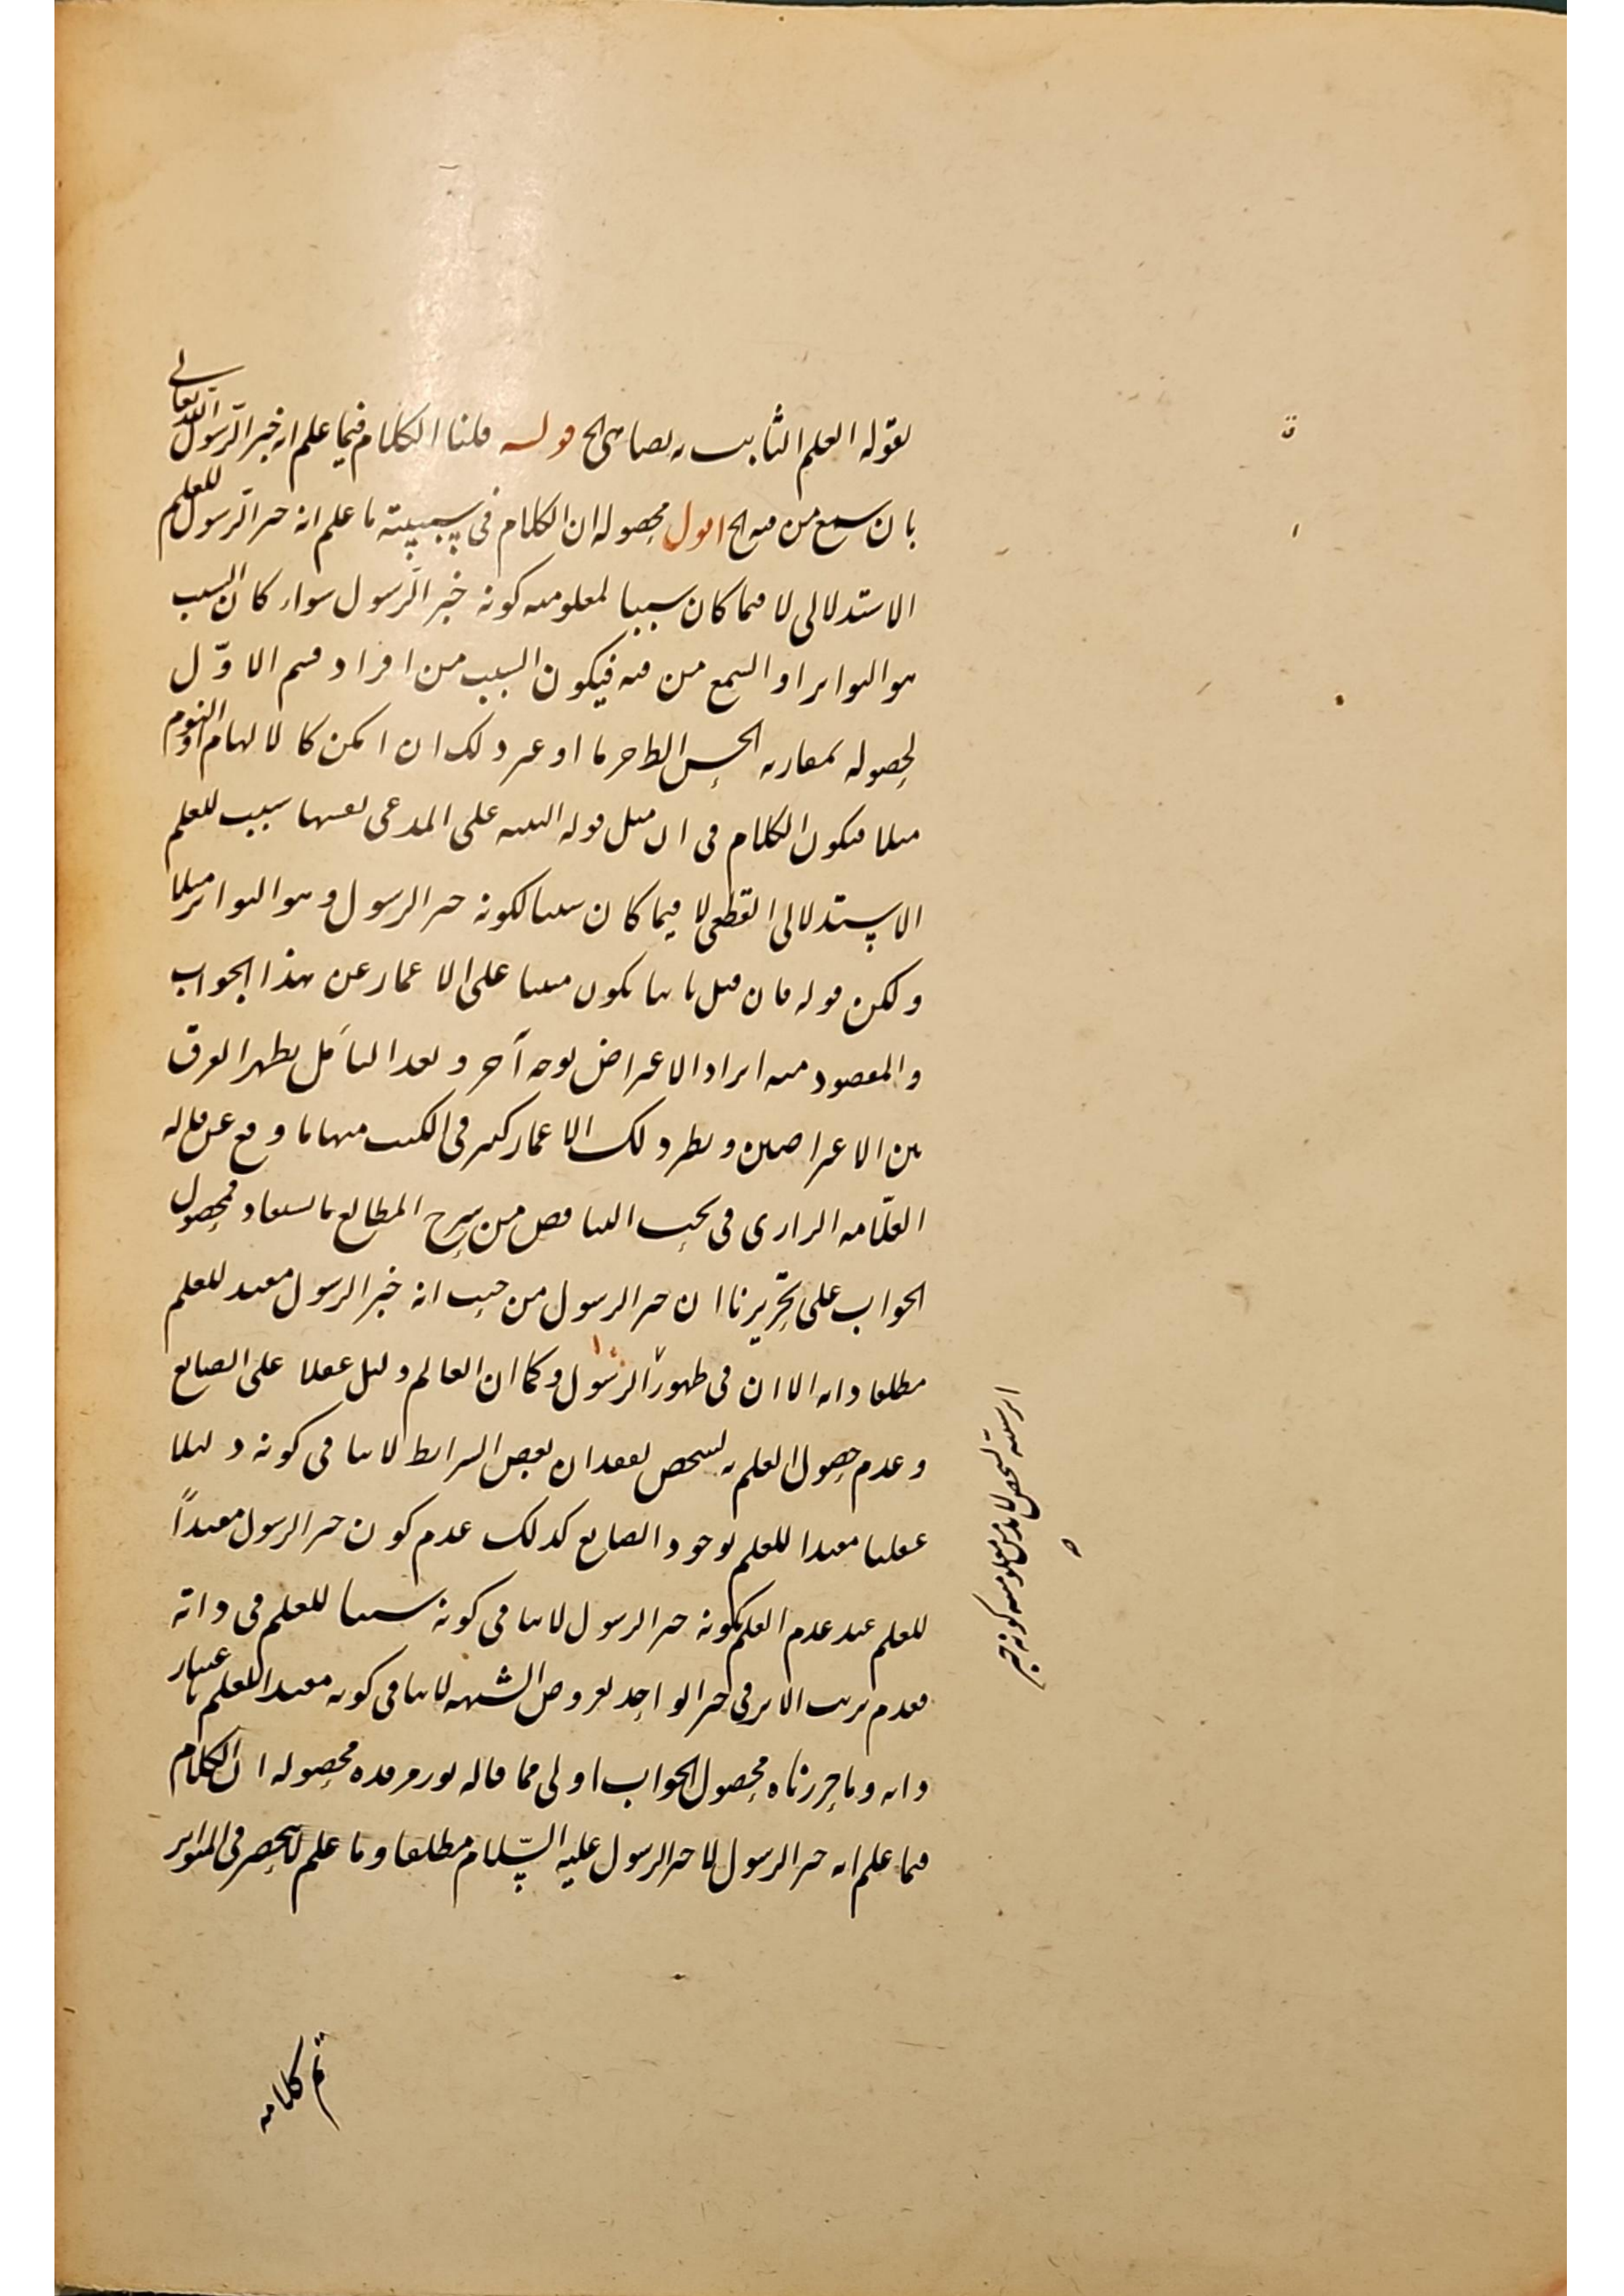 بقوله العلم الثابت به يضاهي الخ قوله قلنا الكلام فيما علم انه خبر الرسول
بان سمع من فيه الخ اقول محصوله ان الكلام في سببية ما علم انه خبر الرسول للعلم
الاستدلالي لا فيما كان سببا لمعلومية كونه خبر الرسول سواء كان السبب
هو التواتر او السمع من فيه فيكون السبب من افراد قسم الاوّل
لحصوله بمقارنة الحس الظاهر ما او غير ذلك ان امكن كالالهام او النوم
مثلا فيكون الكلام في ان مثل قوله البينة على المدعي نفسها سبب للعلم
الاستدلالي القطعي لا فيما كان سببا لكونه خبر الرسول وهو التواتر مثلا
ولكن قوله فان قيل ثانيا يكون مبنيا على الاغماز عن هذا الجواب
والمقصود منه ايراد الاعتراض بوجه آخر وبعد التأمل يظهر الفرق
بين الاعتراضين ونظير ذلك الاغماز كثير في الكتب منها ما وقع عن قاله
العلّامه الرازي في بحث التناقض من شرح المطالع فمحصول
الجواب على تحريرنا ان خبر الرسول من حيث انه خبر الرسول مفيد للعلم
مطلقا ذاته الا ان في ظهور الرسول وكما ان العالم دليل عقلا على الصانع
وعدم حصول العلم به لشخص لفقدان بعض الشرائط لا ينافي كونه دليلا
عقليا مفيدا للعلم بوجود الصانع كذلك عدم كون خبر الرسول مفيداً
للعلم عند عدم العلم بكونه خبر الرسول لا ينافي كونه سببا للعلم في ذاته
فعدم ترتب الاثر في خبر الواحد لعروض الشبهه لا ينافي كونه مفيدا للعلم باعتبار
ذاته وما حررناه محصول الجواب اولى مما قاله نور مرقده محصوله ان الكلام
فيما علم انه خبر الرسول لا خبر الرسول عليه السّلام مطلقا وما علم لا ينحصر في المتواتر
لشخص لا بد من معلومية كونه خبر
تم كلامه